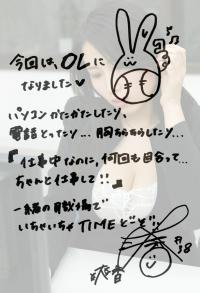 今回は、OLに
なりました♡
パソコンかたかたしたり、
電話とったり…胸ちらちらしたり…
『仕事中なのに、何回も目合って…
ちゃんと仕事して!!』
一緒の職場で
いちゃいちゃTIMEどーぞ♡